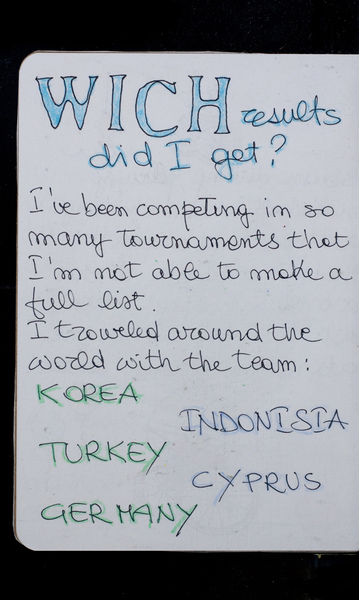 WICH results
did I get?
I've been competing in so
many tournaments that
I'm not able to make a
full list.
I trowled around the
world with the team:
KOREA
INDONISIA
TURKEY
CYPRUS
GERMANY